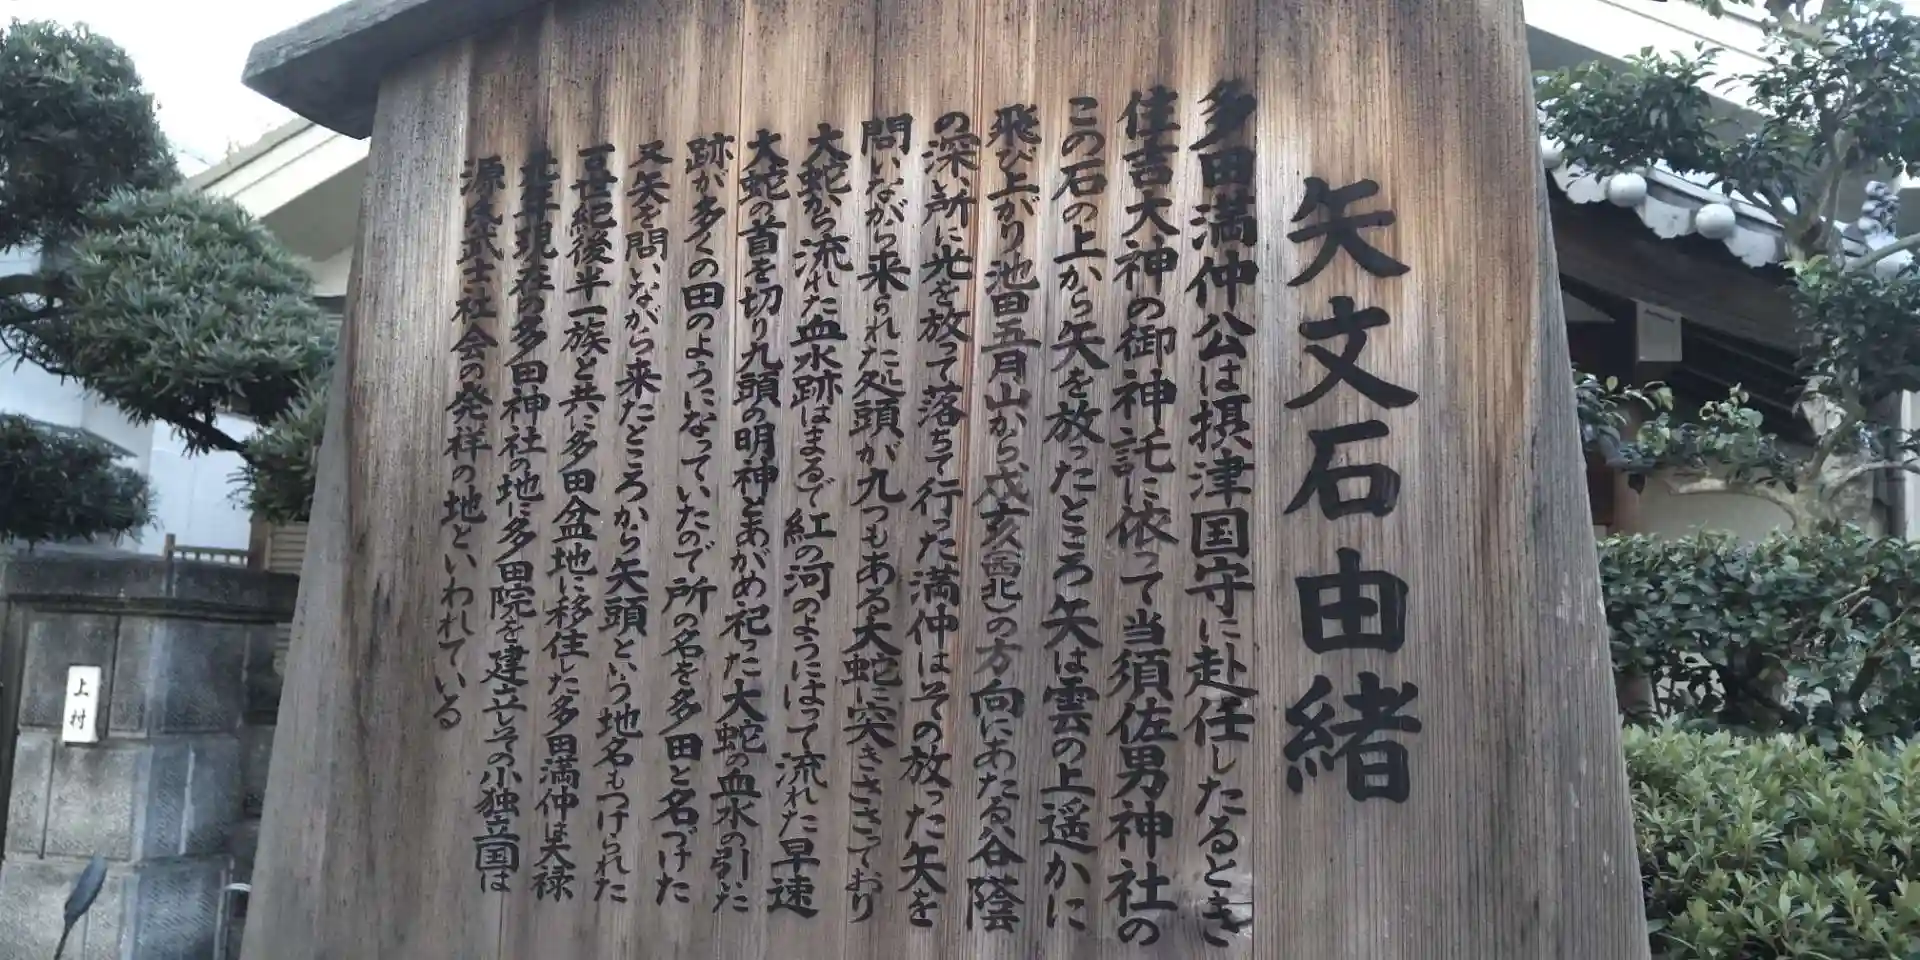 矢文石由緒
多田満仲公は摂津国守に赴任したるとき
住吉大神の御神託に依って当須佐男神社の
この石の上から矢を放ったところ矢は雲の上遥かに
飛び上がり池田五月山から戌亥(西北)の方向にあたる谷陰
の深い所に光を放って落ちて行った満仲はその放った矢を
問いながら来られた処頭が九つもある大蛇に突きささっており
大蛇から流れた血水跡はまるで紅の河のようにはって流れた早速
大蛇の首を切り九頭の明神とあがめ祀った大蛇の血水の引いた
跡が多くの田のようになっていたので所の名を多田と名づけた
又矢を問いながら来たところから矢頭という地名もつけられた
十世紀後半一族と共に多田盆地に移住した多田満仲は天禄
元年現在の多田神社の地に多田院を建立しその小独立国は
源氏武士社会の発祥の地といわれている
上村